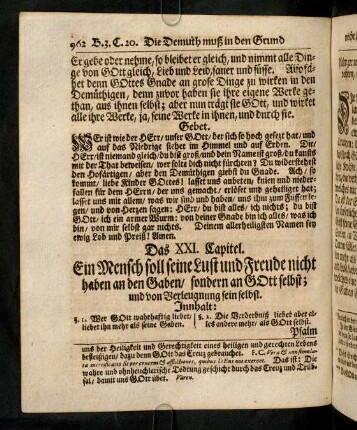 962 B. 3. C. 20. Die Demuth muß in den Grund
Er gebe oder nehme, so bleibet er gleich, und nimmt alle Din-
ge von GOtt gleich, Lieb und Leid, sauer und süsse.
het denn GOttes Gnade an grosse Dinge zu wirken in den
Demüthigen, denn zuvor haben sie ihre eigene Werke ge-
than, aus ihnen selbst; aber nun trägt sie GOtt, und wirket
alle ihre Werke, ja, seine Werke in ihnen, und durch sie.
Gebet.
WEr ist wie der HErr, unser GOtt, der sich so hoch gesezt hat, und
auf das Niedrige siehet im Himmel und auf Erden. Dir,
HErr, ist niemand gleich; du bist groß, und dein Name ist groß, du kanst
mit der That beweisen, wer solte dich nicht fürchten? Du widerstehest
den Hofärtigen, aber den Demüthigen giebst du Gnade. Ach, so
kommt, liebe Kinder GOttes! lasset uns anbeten, knien und nieder-
fallen für dem HErrn, der uns gemacht, erlöset und geheiliget hat;
lasset uns mit allem, was wir sind und haben, uns ihm zum Füssen le-
gen, und von Herzen sagen: HErr, du bist alles, ich nichts; du bist
GOtt, ich ein armer Wurm: von deiner Gnade bin ich alles, was ich
bin, von mir selbst gar nichts. Deinem allerheiligsten Namen sey
ewig Lob und Preiß! Amen.
Das XXI. Capitel.
Ein Mensch soll seine Lust und Freude nicht
haben an den Gaben, sondern an GOtt selbst;
und von Verleugnung sein selbst.
Innhalt:
§. 1. Wer GOtt wahrhaftig liebet, §. 2. Die Verderbniß liebet aber al-
liebet ihn mehr als seine Gaben. les andere mehr, als GOtt selbst.
Psalm
uns der Heiligkeit und Gerechtigkeit eines heiligen und gerechten Lebens
befleißigen, dazu denn GOtt das Creuz gebrauchet. F. C. Vera &
Das ist: Die
wahre und ohnheuchlerische Tödtung geschicht durch das Creuz und Trüb-
sal, damit uns GOtt übet. Varen.